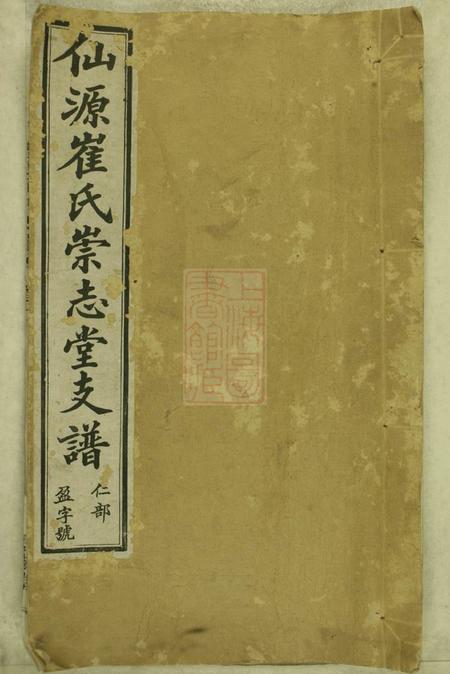 仙源崔氏崇志堂支譜
仁部
盈字號
上海圖
書館藏